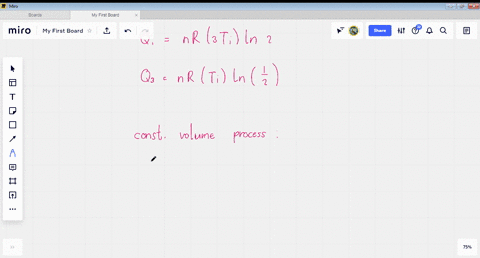 Miro
Boards
My First Board
miro
My First Board
Share
Q₁ = nR (3T₁) ln 2
Q₃ = nR (T₁) ln (1/2)
const. volume process .
75%